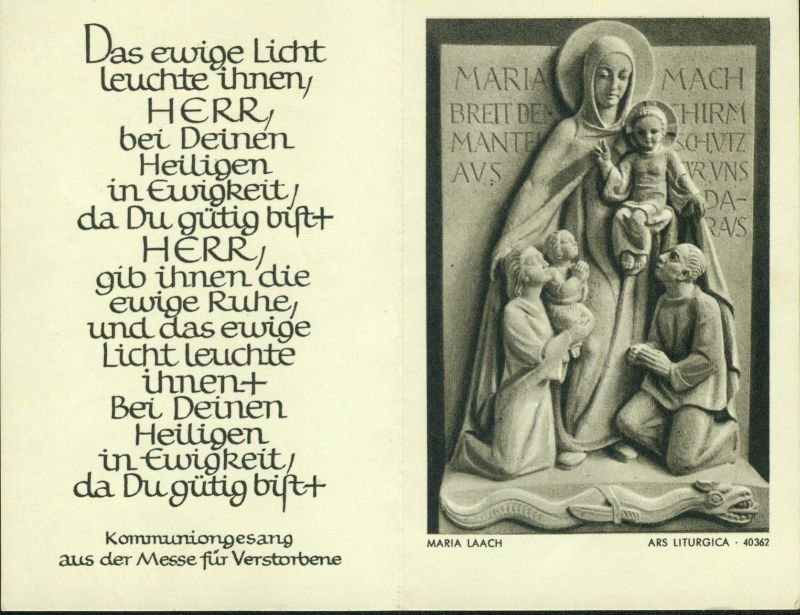 Das ewige Licht
leuchte ihnen,
HERR,
bei Deinen
Heiligen
in Ewigkeit,
da Du gütig bist+
HERR,
gib ihnen die
ewige Ruhe,
und das ewige
Licht leuchte
ihnen+
Bei Deinen
Heiligen
in Ewigkeit,
da Du gütig bist+
Kommuniongesang
aus der Messe für Verstorbene
MARIA
BREIT DEN
MANTEL
AVS
MACH
SCHIRM
SCHVTZ
FÜR VNS
DA-
RAVS
MARIA LAACH
ARS LITURGICA · 40362